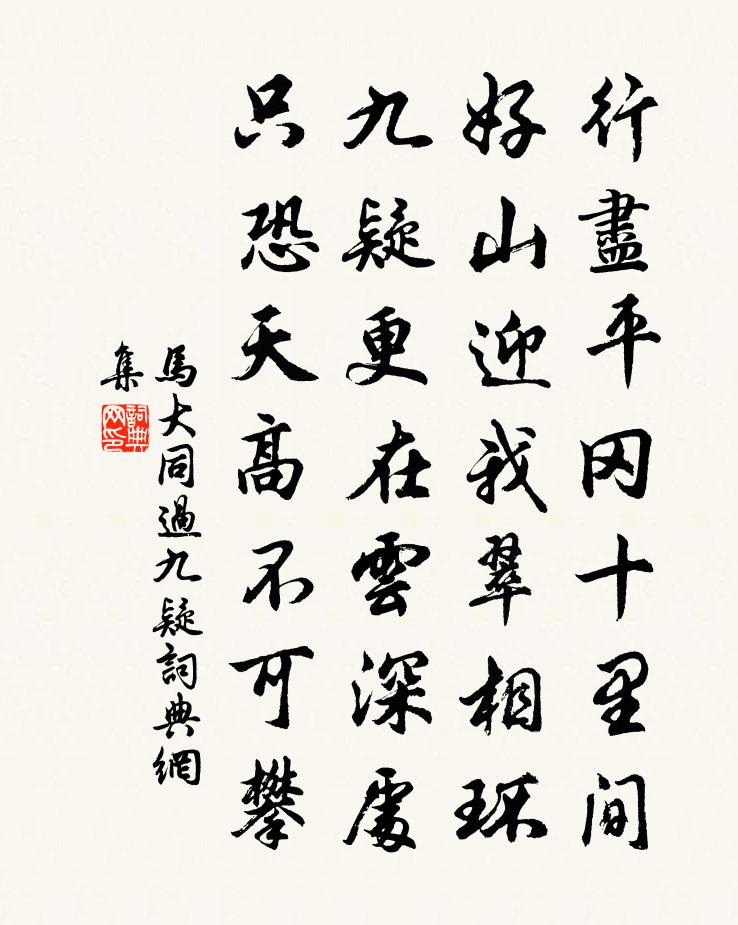 行盡平岡十里間
好山迎我翠相環
九疑更在雲深處
只恐天高不可攀
馬大同過九疑詞典網
集
詞典
网印